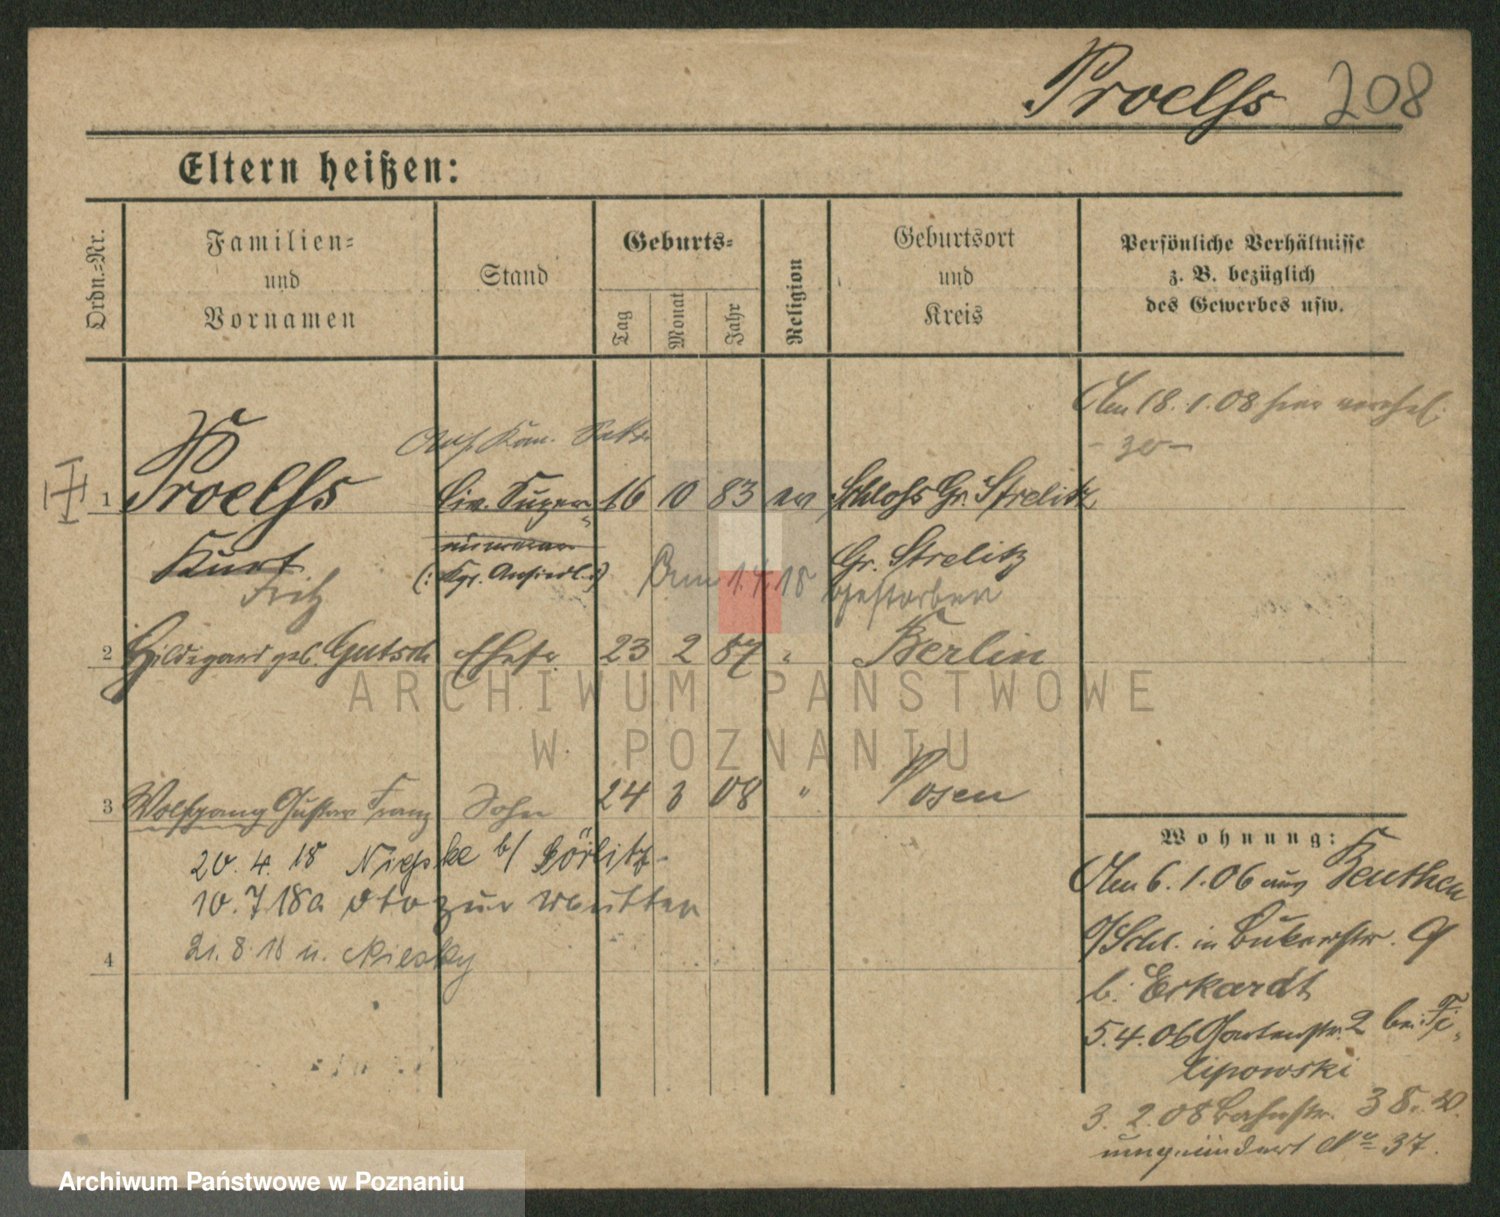 Proelss 208
Eltern heißen:
Ordn.=Nr.
Familien=
und
Vornamen
Stand
Geburts=
Tag
Monat
Jahr
Religion
Geburtsort
und
Kreis
Persönliche Verhältnisse
z. B. bezüglich
des Gewerbes usw.
Am 18.1.08 hier
1 Proelss Civ. Super= 16 10 83 ev Schloss Gr. Strelitz
Kurt
(: Kgl. Ansiedl. :)
Gr. Strelitz
Fritz
Am 1.4.18 gestorben
2 Hildegard geb. Gutsch Ehefr 23 2 87 " Berlin
3 Wolfgang Gustav Franz Sohn 24 3 08 " Posen
20. 4. 18 b/ Görlitz
10. 7. 18 a dto zur Mutter
4 21. 8. 18 n. Niesky
Wohnung:
Am 6.1.06 aus Beuthen
O/Schl. in Bukerstr. 9
b. Erkardt
5.4.06 Gartenstr. 2 bei Fi=
lipowski
3. 2. 08 Bahnstr. 38.
umgeändert No 37.
ARCHIWUM PAŃSTWOWE
W POZNANIU
Archiwum Państwowe w Poznaniu